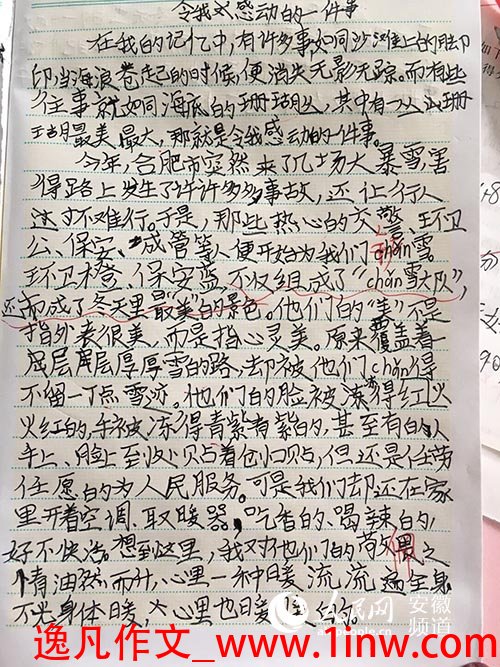 令我感动的一件事
在我的记忆中,有许多事如同沙滩上的脚
印,当海浪卷起的时候,便消失无影无踪。而有些
往事就如同海底的珊瑚,其中有一
瑚最美最大,那就是令我感动的一件事。
今年,合肥市突然来了几场大暴雪,害
得路上发生了许许多多事故,还让行人
过不难行。于是,那些热心的交警、环卫
公、保安、成管等人便开始为我们chǎn雪。
环卫橙、保安蓝,不仅组成了“chǎn雪大队”,
还成了冬天里最“美”的景色。他们的“美”不是
指外表很美,而是指心灵美。原来覆盖着一
层层厚厚雪的路,却被他们chǎn得
不留一丁点雪迹。他们的脸被冻得红火
火红的,手被冻得青紫青紫的,甚至有的人
手上、脸上至少贴着创口贴,但还是任劳
任愿的为人民服务。可是我们却还在家
里开着空调、取暖器,吃香的、喝辣的,
好不快活。想到这里,我对他们的佩之
情油然而升,心里一种暖流流遍全身
不光身体暖,心里也暖
人民网 安徽
频道
逸凡作文_www.1inw.com